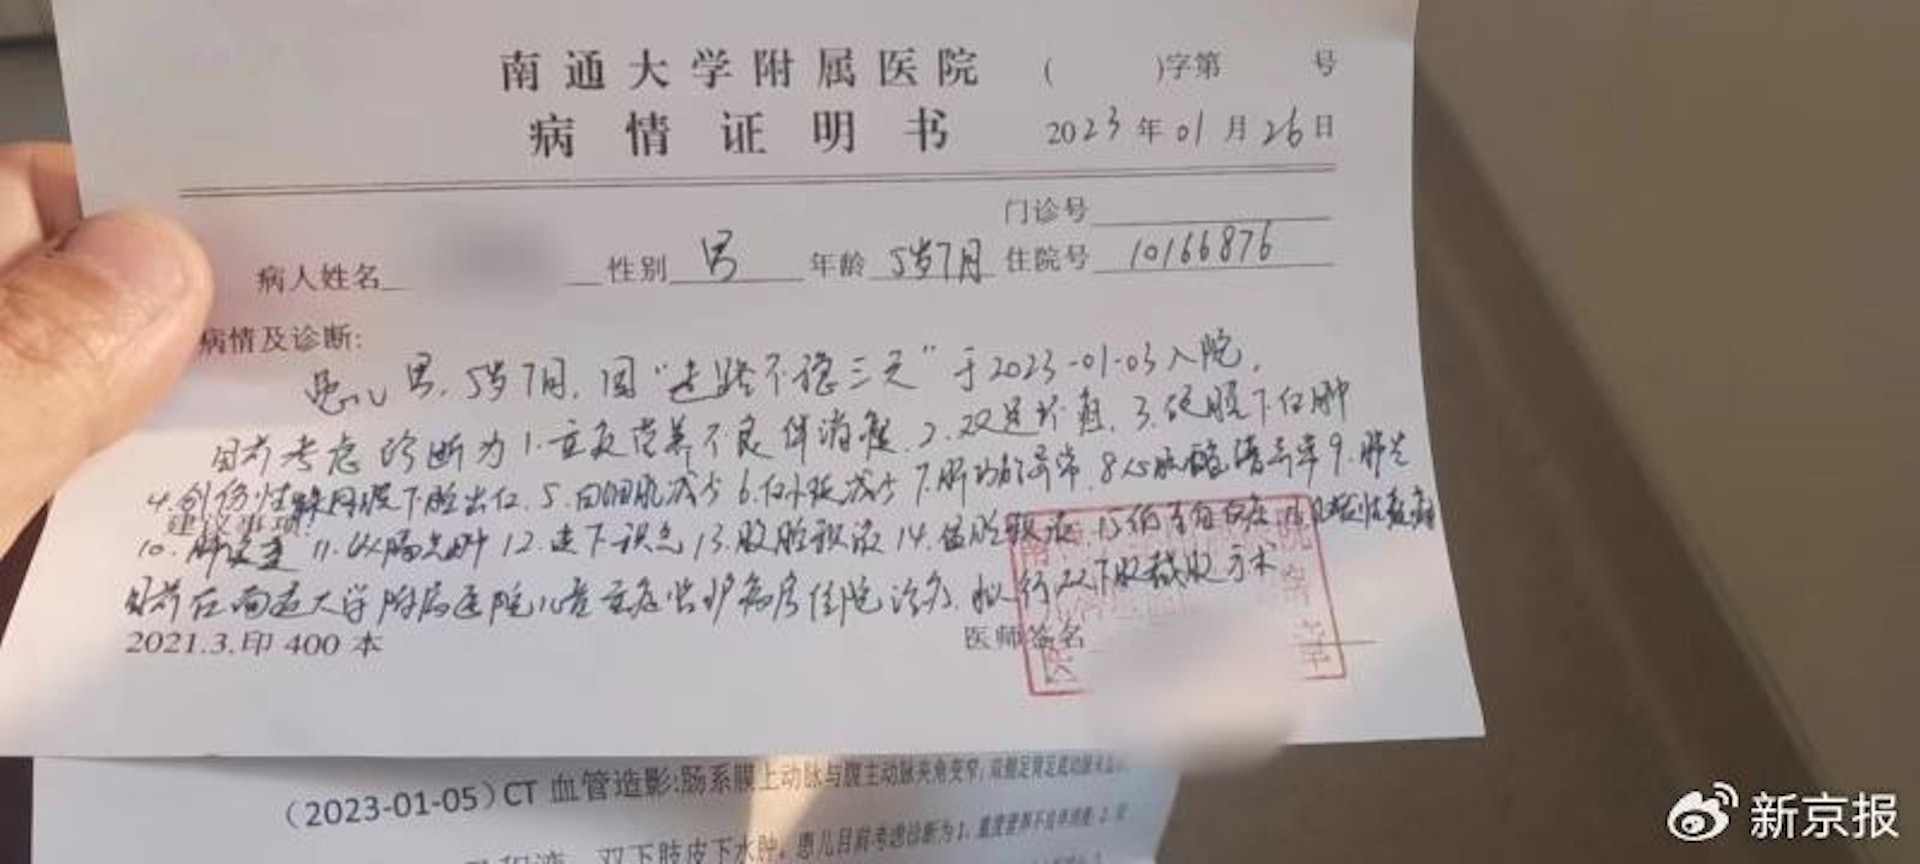 南通大学附属医院 ( )字第 号
病情证明书 2023年01月26日
门诊号
病人姓名 性别 男 年龄 5岁7月 住院号 10166876
病情及诊断:
患儿男,5岁7月,因“走路不稳三天”于2023-01-03入院,
目前考虑诊断为1.重度营养不良伴消瘦,2.双足坏疽,3.硬膜下血肿
4.创伤性蛛网膜下腔出血,5.白细胞减少 6.血小板减少 7.肝功能异常,8.心肌酶谱异常9.肺炎
建议事项:
10. 11. 12. 13.腹腔积液14.盆腔积液,15.低蛋白血症
目前在南通大学附属医院儿童重症监护病房住院治疗,拟行双下肢截肢手术
2021.3.印 400 本 医师签名
(2023-01-05)CT 血管造影:肠系膜上动脉与腹主动脉夹角变窄;双侧足背足底动脉
双下肢皮下水肿。患儿目前考虑诊断为1.重度营养不良伴消瘦;2.双
新京报